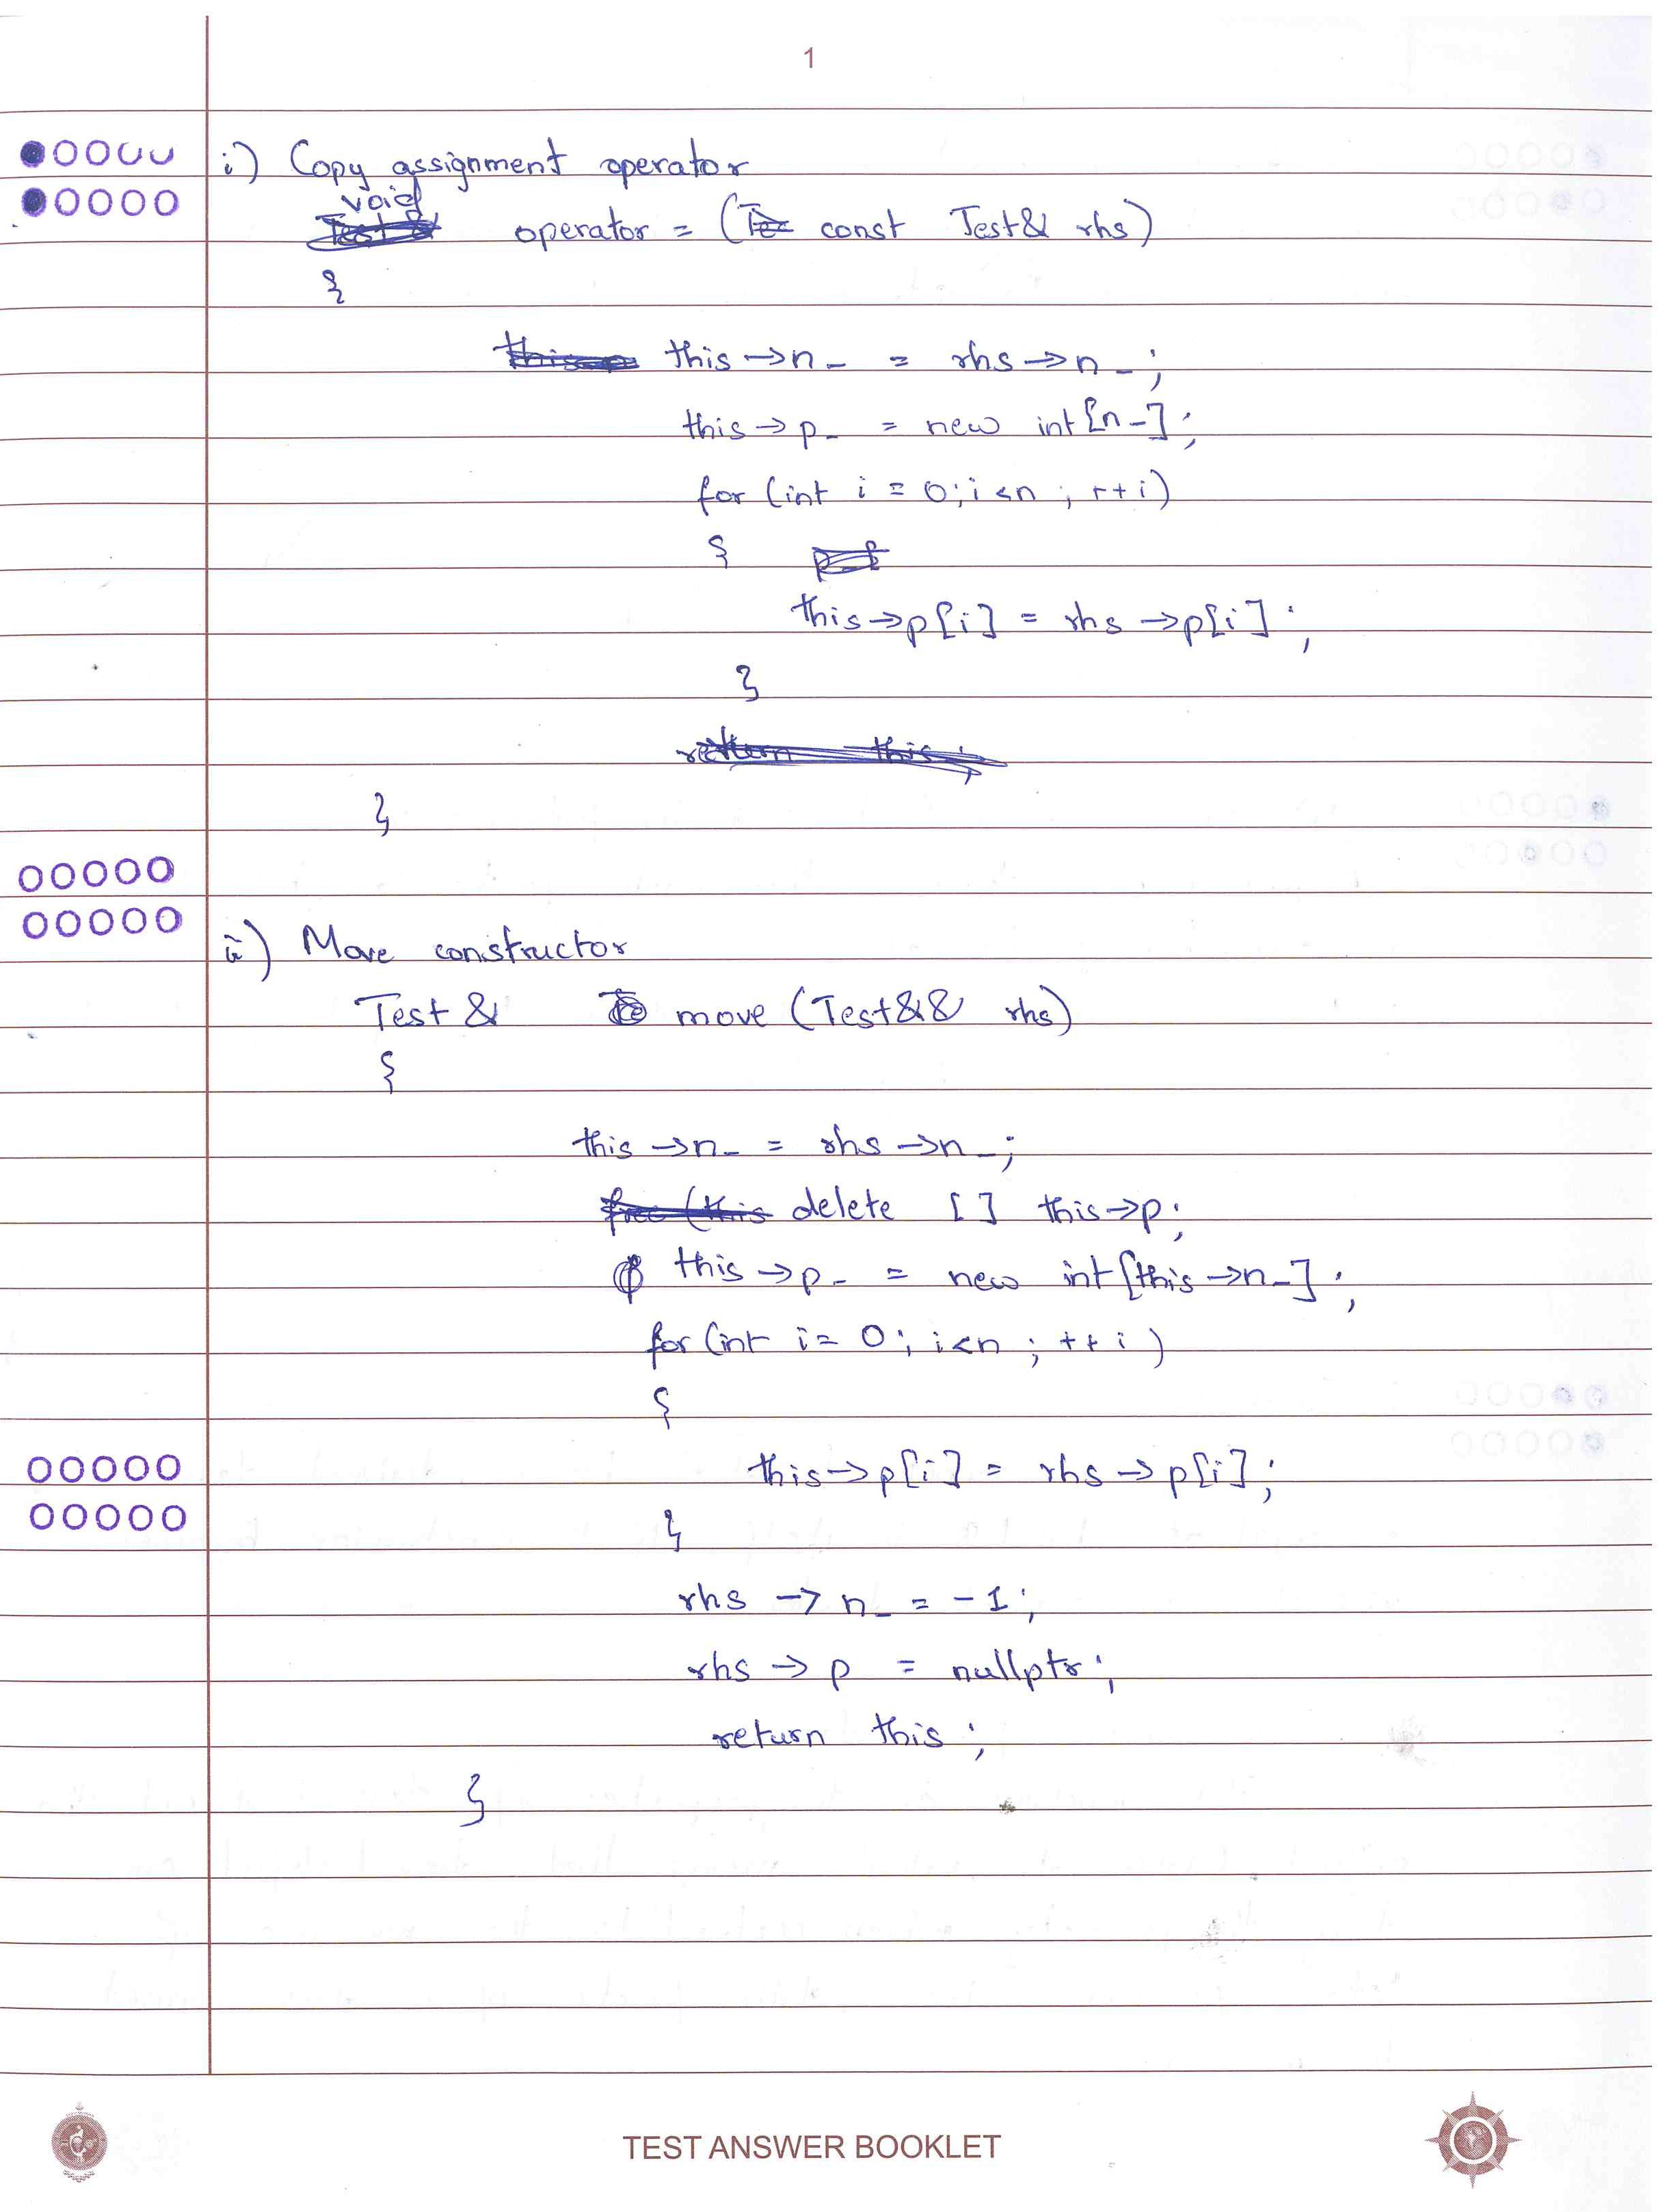 1
i) Copy assignment operator
void
operator = (const Test& rhs)
{
this->n_ = rhs->n_;
this->p_ = new int[n_];
for (int i = 0; i<n ; ++i)
{
this->p[i] = rhs->p[i];
}
}
ii) Move constructor
Test& move (Test&& rhs)
{
this->n_ = rhs->n_;
delete [] this->p;
this->p_ = new int[this->n_];
for (int i = 0; i<n ; ++i)
{
this->p[i] = rhs->p[i];
}
rhs->n_ = -1;
rhs->p = nullptr;
return this;
}
TEST ANSWER BOOKLET